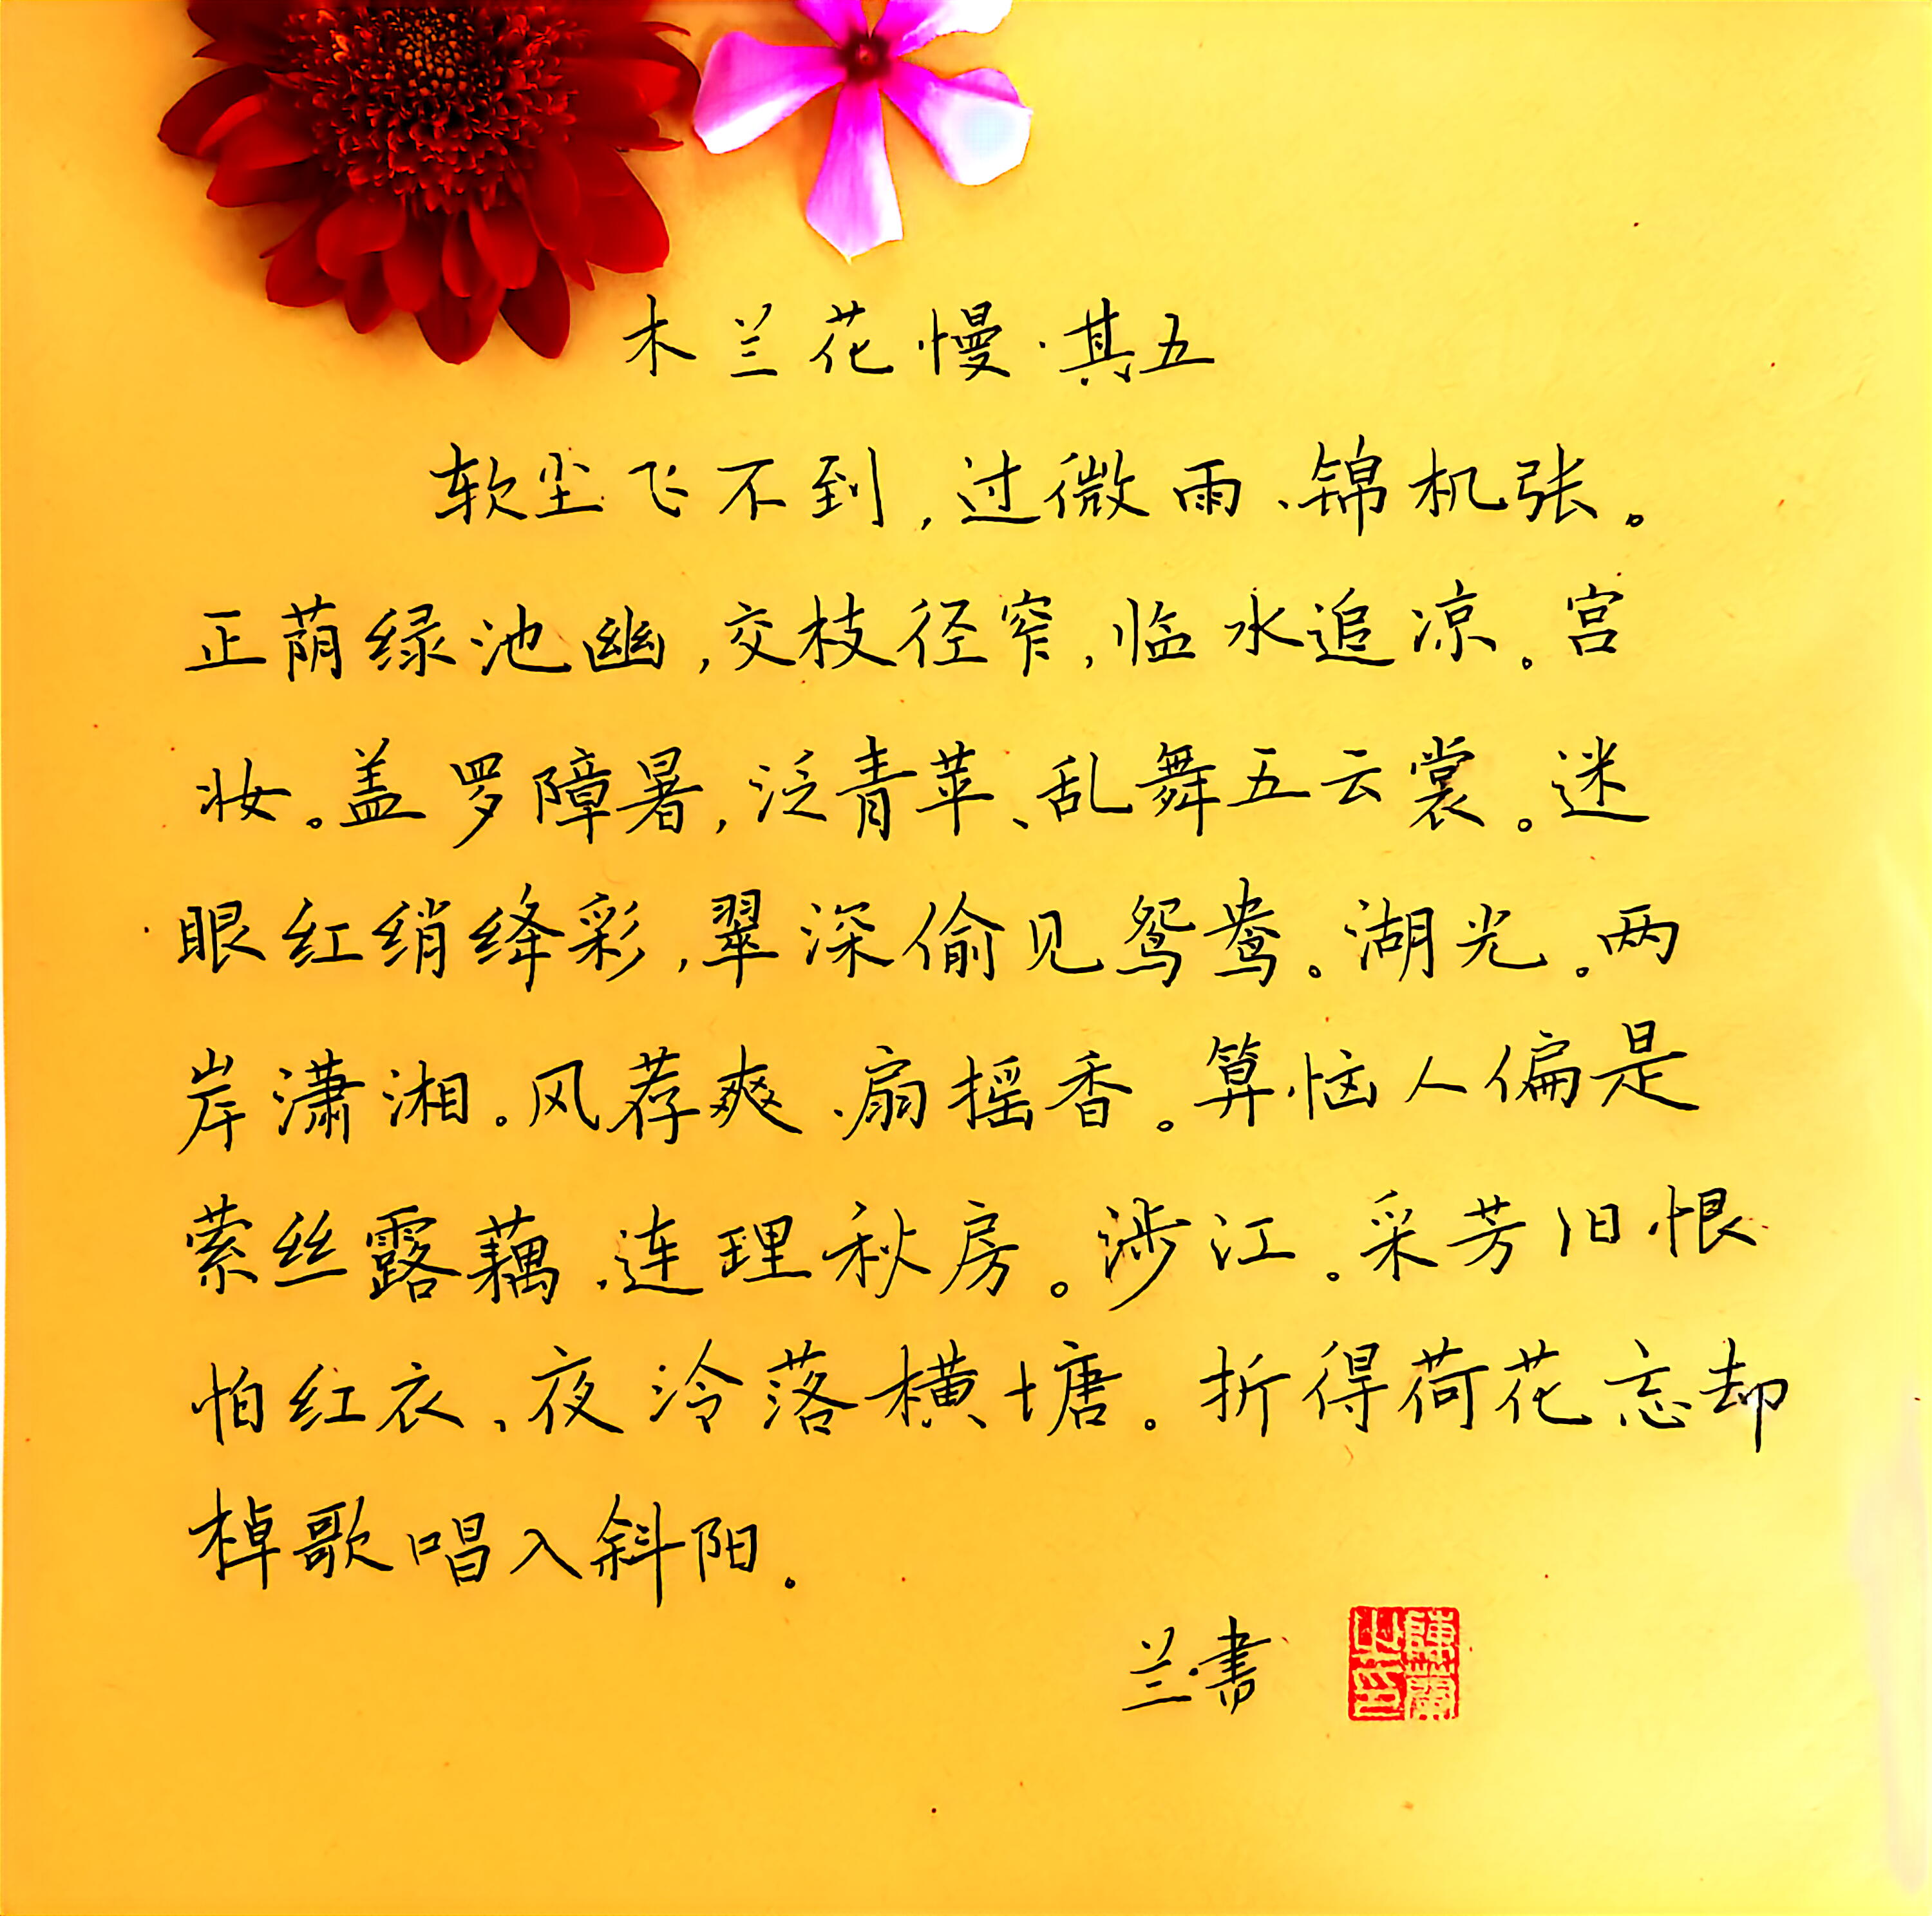 木兰花慢·其五
软尘飞不到,过微雨、锦机张。
正荫绿池幽,交枝径窄,临水追凉。宫
妆。盖罗障暑,泛青苹、乱舞五云裳。迷
眼红绡绛彩,翠深偷见鸳鸯。湖光。两
岸潇湘。风荐爽、扇摇香。算恼人偏是
萦丝露藕、连理秋房。涉江。采芳旧恨
怕红衣、夜冷落横塘。折得荷花忘却
棹歌唱入斜阳。
兰·書
陳蘭之印